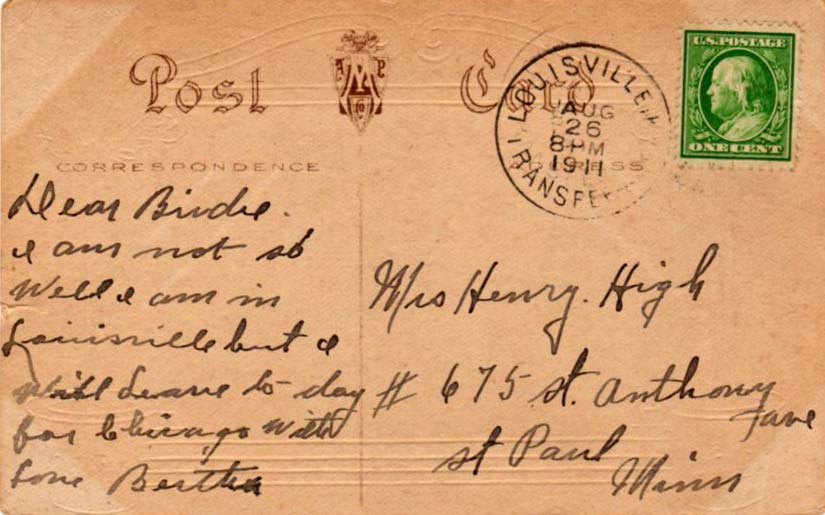 Post Card
A M P
Co
CORRESPONDENCE
LOUISVILLE, K
AUG
26
8 PM
1911
TRANSFER
U.S. POSTAGE
ONE CENT
Dear Birdie.
I am not so
well I am in
Louisville but I
will Leave to-day
for Chicago with
love Bertha
Mrs Henry. High
# 675 St. Anthony
ave
St Paul
Minn